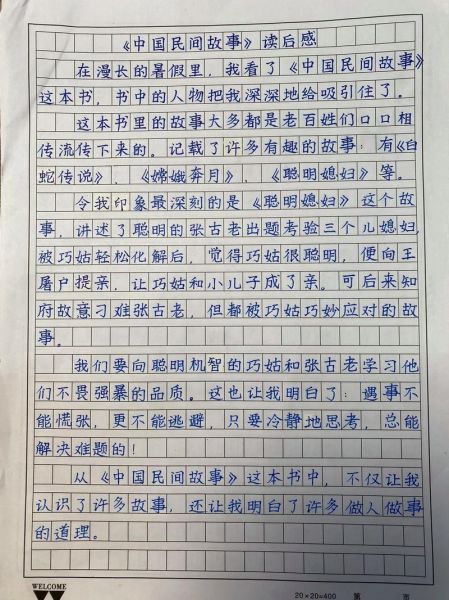 《中国民间故事》读后感
在漫长的暑假里，我看了《中国民间故事》
这本书，书中的人物把我深深地给吸引住了。
这本书里的故事大多都是老百姓们口口相
传流传下来的。记载了许多有趣的故事：有《白
蛇传说》、《嫦娥奔月》、《聪明媳妇》等。
令我印象最深刻的是《聪明媳妇》这个故
事，讲述了聪明的张古老出题考验三个儿媳妇，
被巧姑轻松化解后，觉得巧姑很聪明，便向王
屠户提亲，让巧姑和小儿子成了亲。可后来知
府故意刁难张古老，但都被巧姑巧妙应对的故
事。
我们要向聪明机智的巧姑和张古老学习他
们不畏强暴的品质。这也让我明白了：遇事不
能慌张，更不能逃避，只要冷静地思考，总能
解决难题的！
从《中国民间故事》这本书中，不仅让我
认识了许多故事，还让我明白了许多做人做事
的道理。
WELCOME
20×20=400 第 页